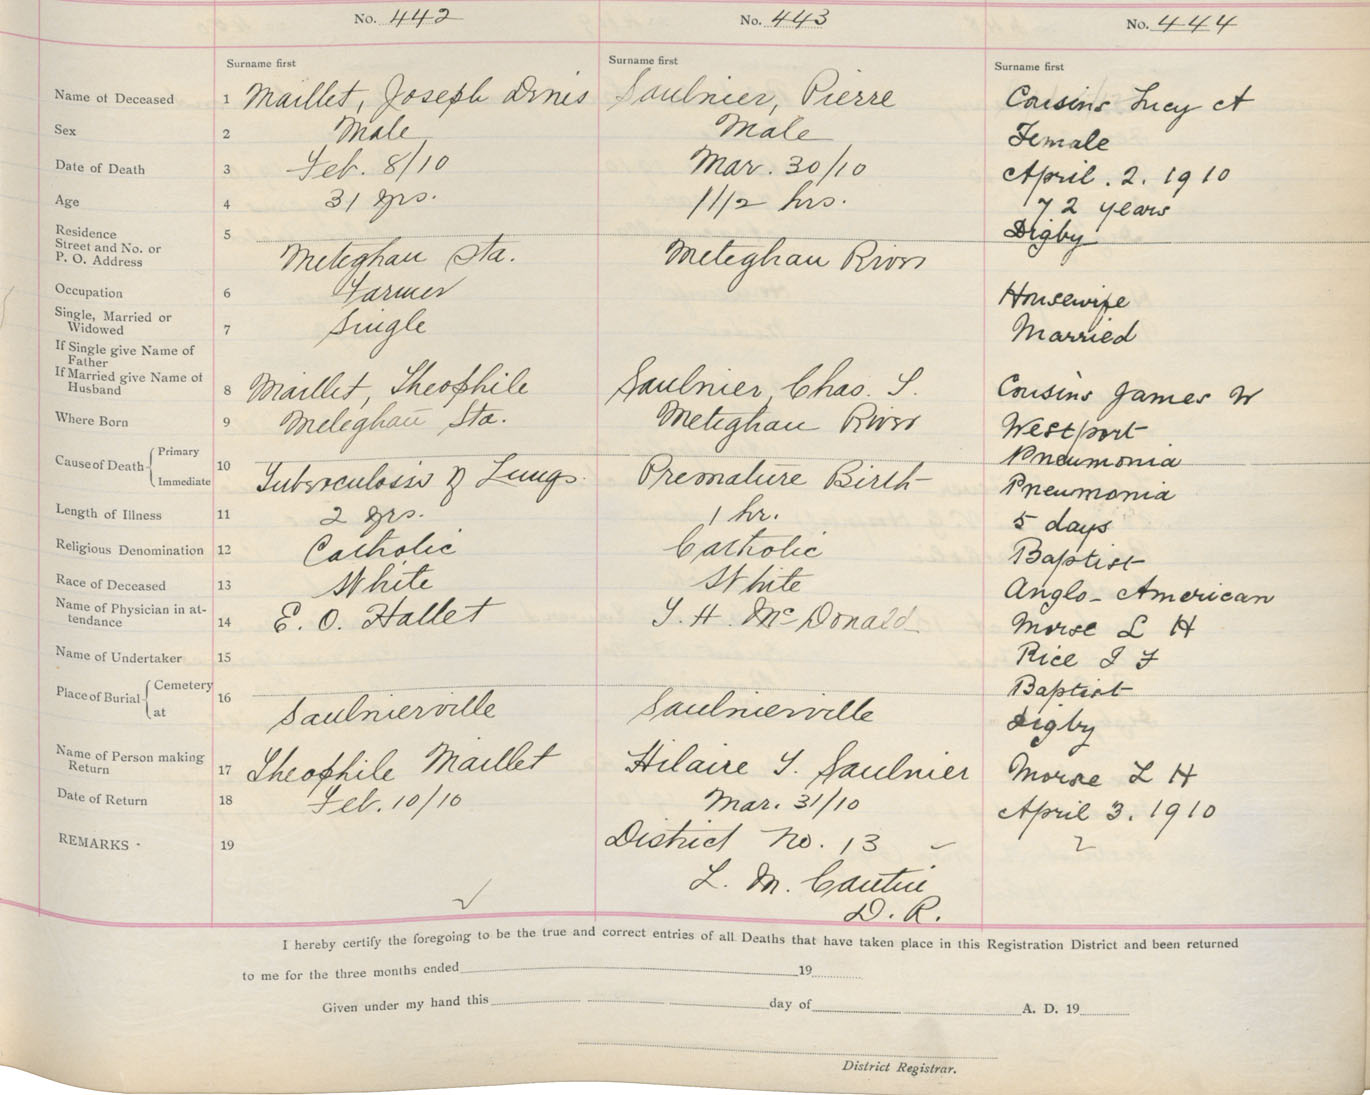 No. 442 No. 443 No. 444
Surname first Surname first Surname first
Name of Deceased 1 Maillet, Joseph Denis Saulnier, Pierre Cousins Lucy A
Sex 2 Male Male Female
Date of Death 3 Feb. 8/10 Mar. 30/10 April. 2. 1910
Age 4 31 yrs. 1 1/2 hrs. 72 years
Residence 5 Digby
Street and No. or
P. O. Address Meteghan Sta. Meteghan River
Occupation 6 Farmer Housewife
Single, Married or
Widowed 7 Single Married
If Single give Name of
Father
If Married give Name of
Husband 8 Maillet, Theophile Saulnier, Chas. T. Cousins James W
Where Born 9 Meteghan Sta. Meteghan River Westport
Cause of Death Primary 10 Pneumonia
Immediate Tuberculosis of Lungs. Premature Birth Pneumonia
Length of Illness 11 2 yrs. 1 hr. 5 days
Religious Denomination 12 Catholic Catholic Baptist
Race of Deceased 13 White White Anglo-American
Name of Physician in at-
tendance 14 E. O. Hallet T. H. McDonald Morse L H
Name of Undertaker 15 Rice J F
Place of Burial Cemetery 16 Baptist
at Saulnierville Saulnierville Digby
Name of Person making
Return 17 Theophile Maillet Hilaire T. Saulnier Morse L H
Date of Return 18 Feb. 10/10 Mar. 31/10 April 3. 1910
REMARKS 19 District No. 13
L. M.
D. R.
I hereby certify the foregoing to be the true and correct entries of all Deaths that have taken place in this Registration District and been returned
to me for the three months ended 19
Given under my hand this day of A. D. 19
District Registrar.